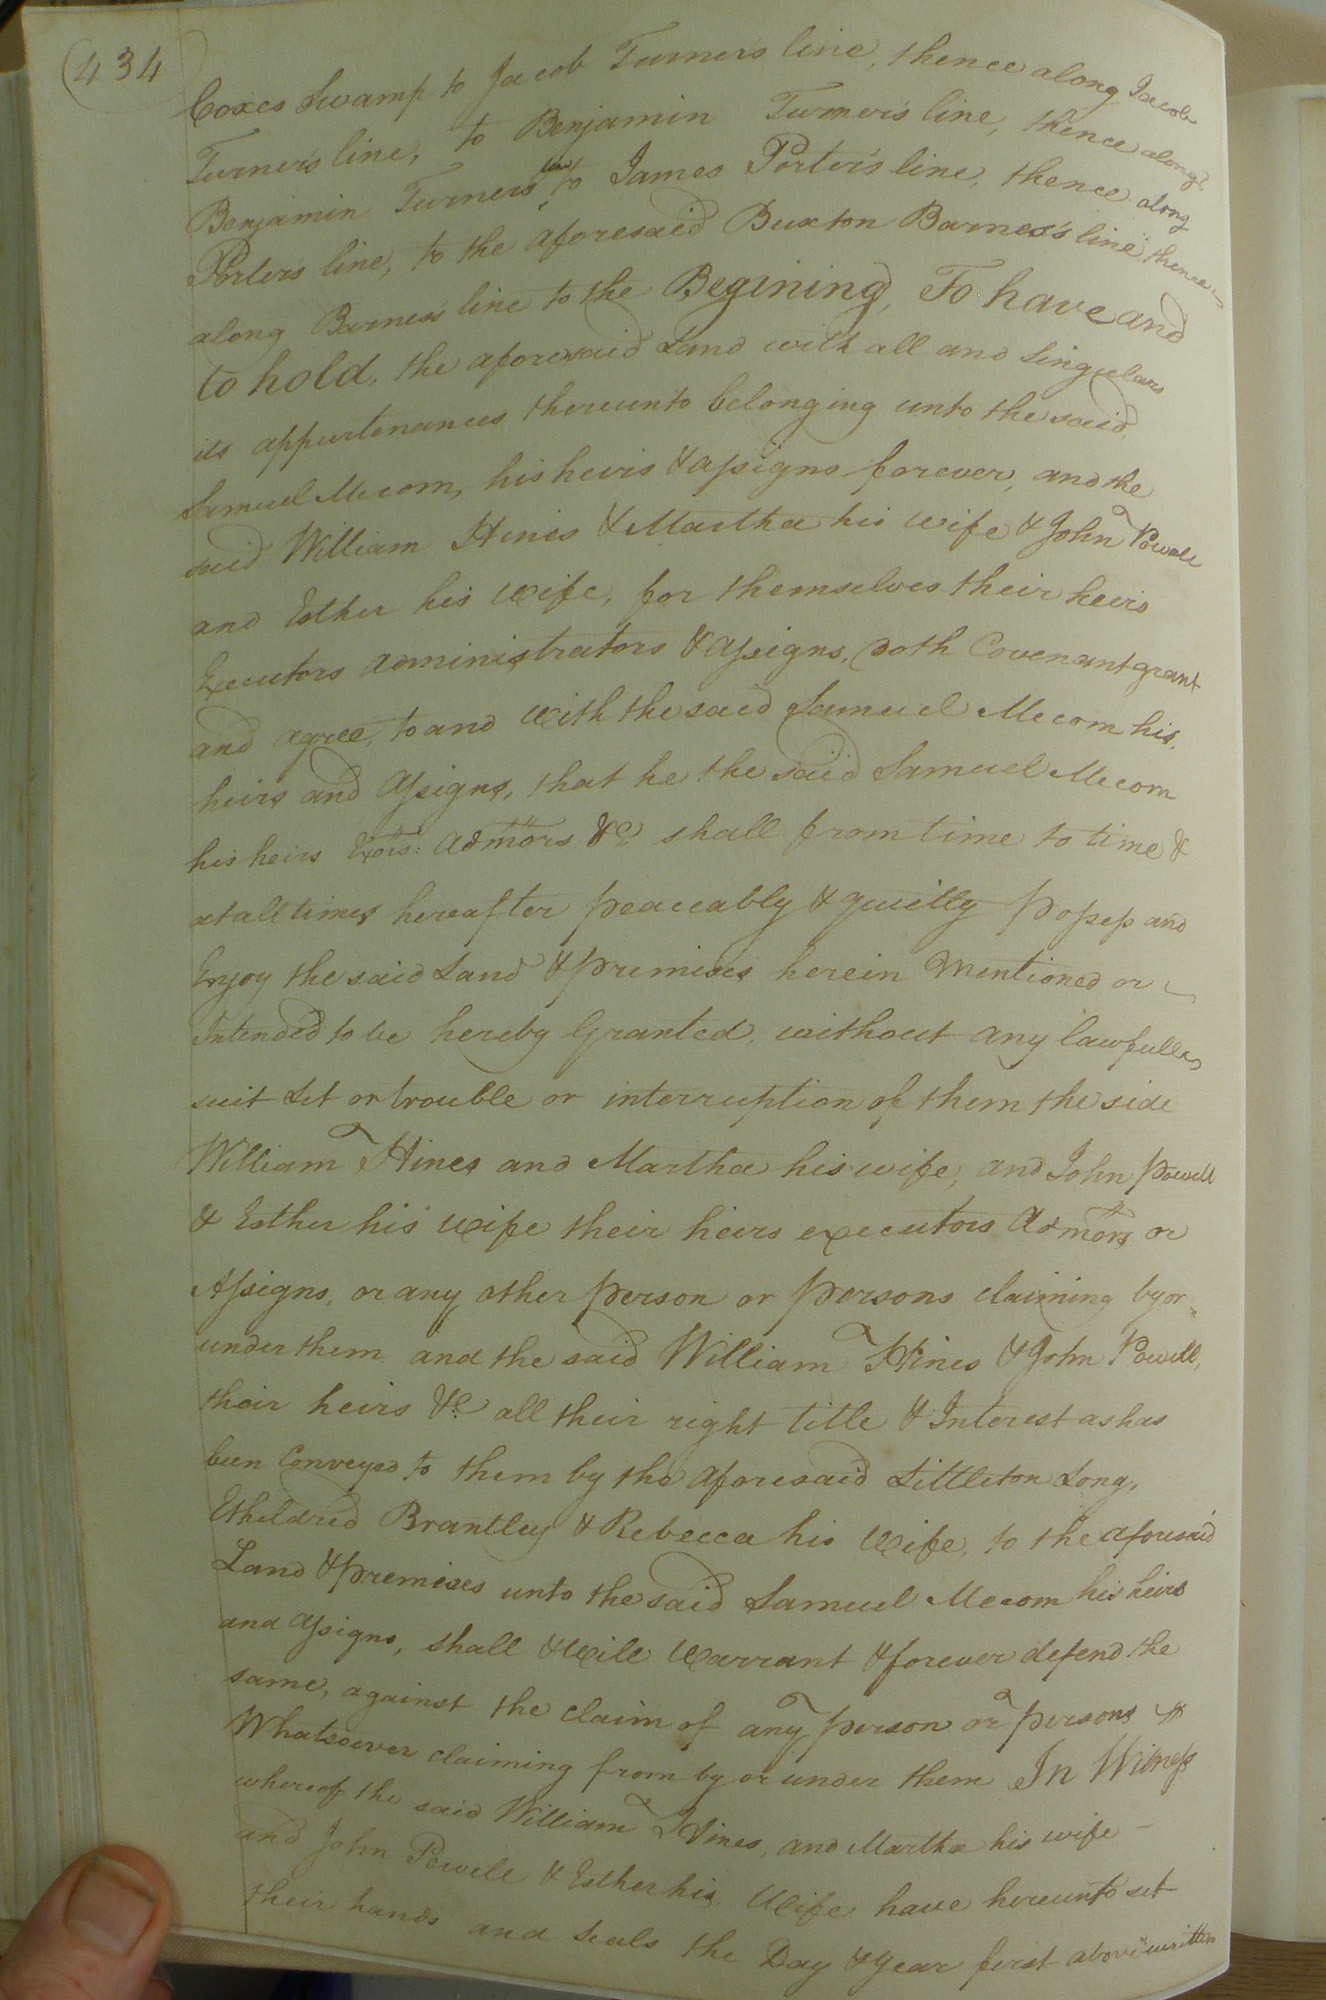 (434
Coxes Swamp to Jacob Turner's line, thence along Jacob
Turner's line, to Benjamin Turner's line, thence along
Benjamin Turners line to James Porter's line, thence along
Porters line, to the aforesaid Buxton Barnes's line thence
along Barness line to the Begining, To have and
to hold, the aforesaid Land with all and Singular
its appurtenances thereunto belonging unto the said
Samuel Mecom, his heirs & assigns forever, and the
said William Hines & Martha his wife & John Powell
and Esther his wife, for themselves their heirs
Executors administrators & assigns, doth Covenant grant
and agree, to and with the said Samuel Mecom his,
heirs and assigns, that he the said Samuel Mecom
his heirs Exors: admors &c shall from time to time &
at all times hereafter peaceably & quielly possess and
Enjoy the said Land & premises herein mentioned or
Intended to be hereby Granted, without any lawfull
suit Let or trouble or interruption of them the side
William Hines and Martha his wife, and John Powell
& Esther his wife their heirs executors admors or
Assigns, or any other person or persons claiming by or
under them and the said William Hines & John Powell,
their heirs &c all their right title & Interest as has
been Conveyed to them by the aforesaid Littleton Long,
Etheldred Brantley & Rebecca his wife, to the aforesaid
Land & premises unto the said Samuel Mecom his heirs
and assigns, shall & will warrant & forever defend the
same, against the claim of any person or persons
Whatsoever claiming from by or under them In Witness
whereof the said William Hines, and Martha his wife
and John Powell & Esther his wife have hereunto set
their hands and seals the Day & year first above written